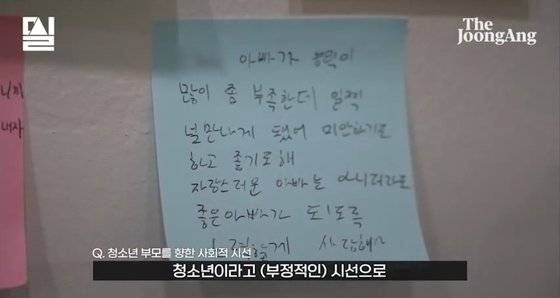 밀실
The JoongAng
니까
내자
아빠가
많이 좀 부족한데 일찍
널 만나게 됐어 미안하기도
하고 좋기도해
자랑스러운 아빠는 아니더라도
좋은아빠가 되도록
사랑해
Q. 청소년 부모를 향한 사회적 시선
청소년이라고 (부정적인) 시선으로